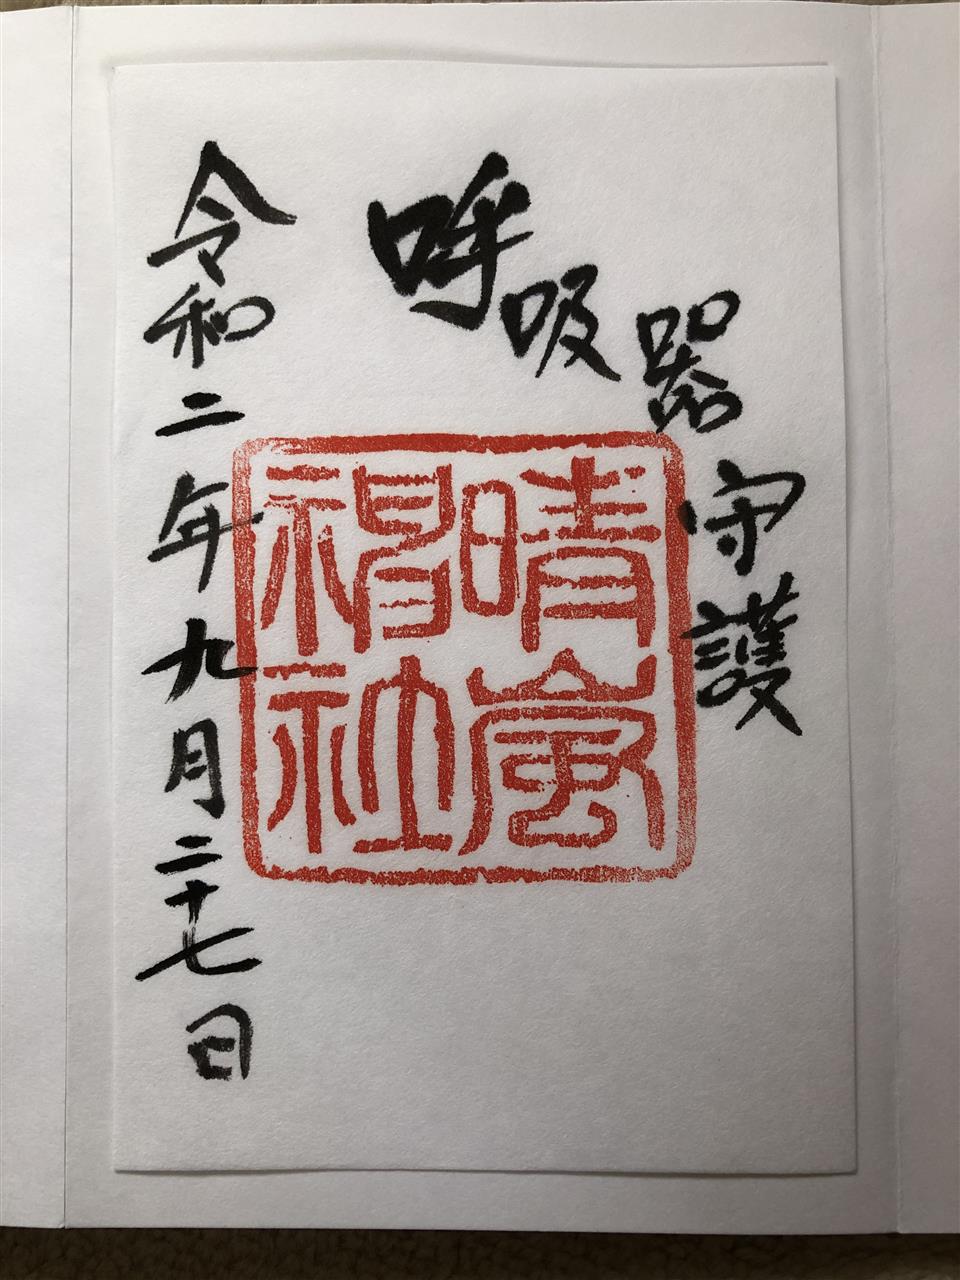 呼吸器守護
晴嵐
神社
令和二年九月二十七日